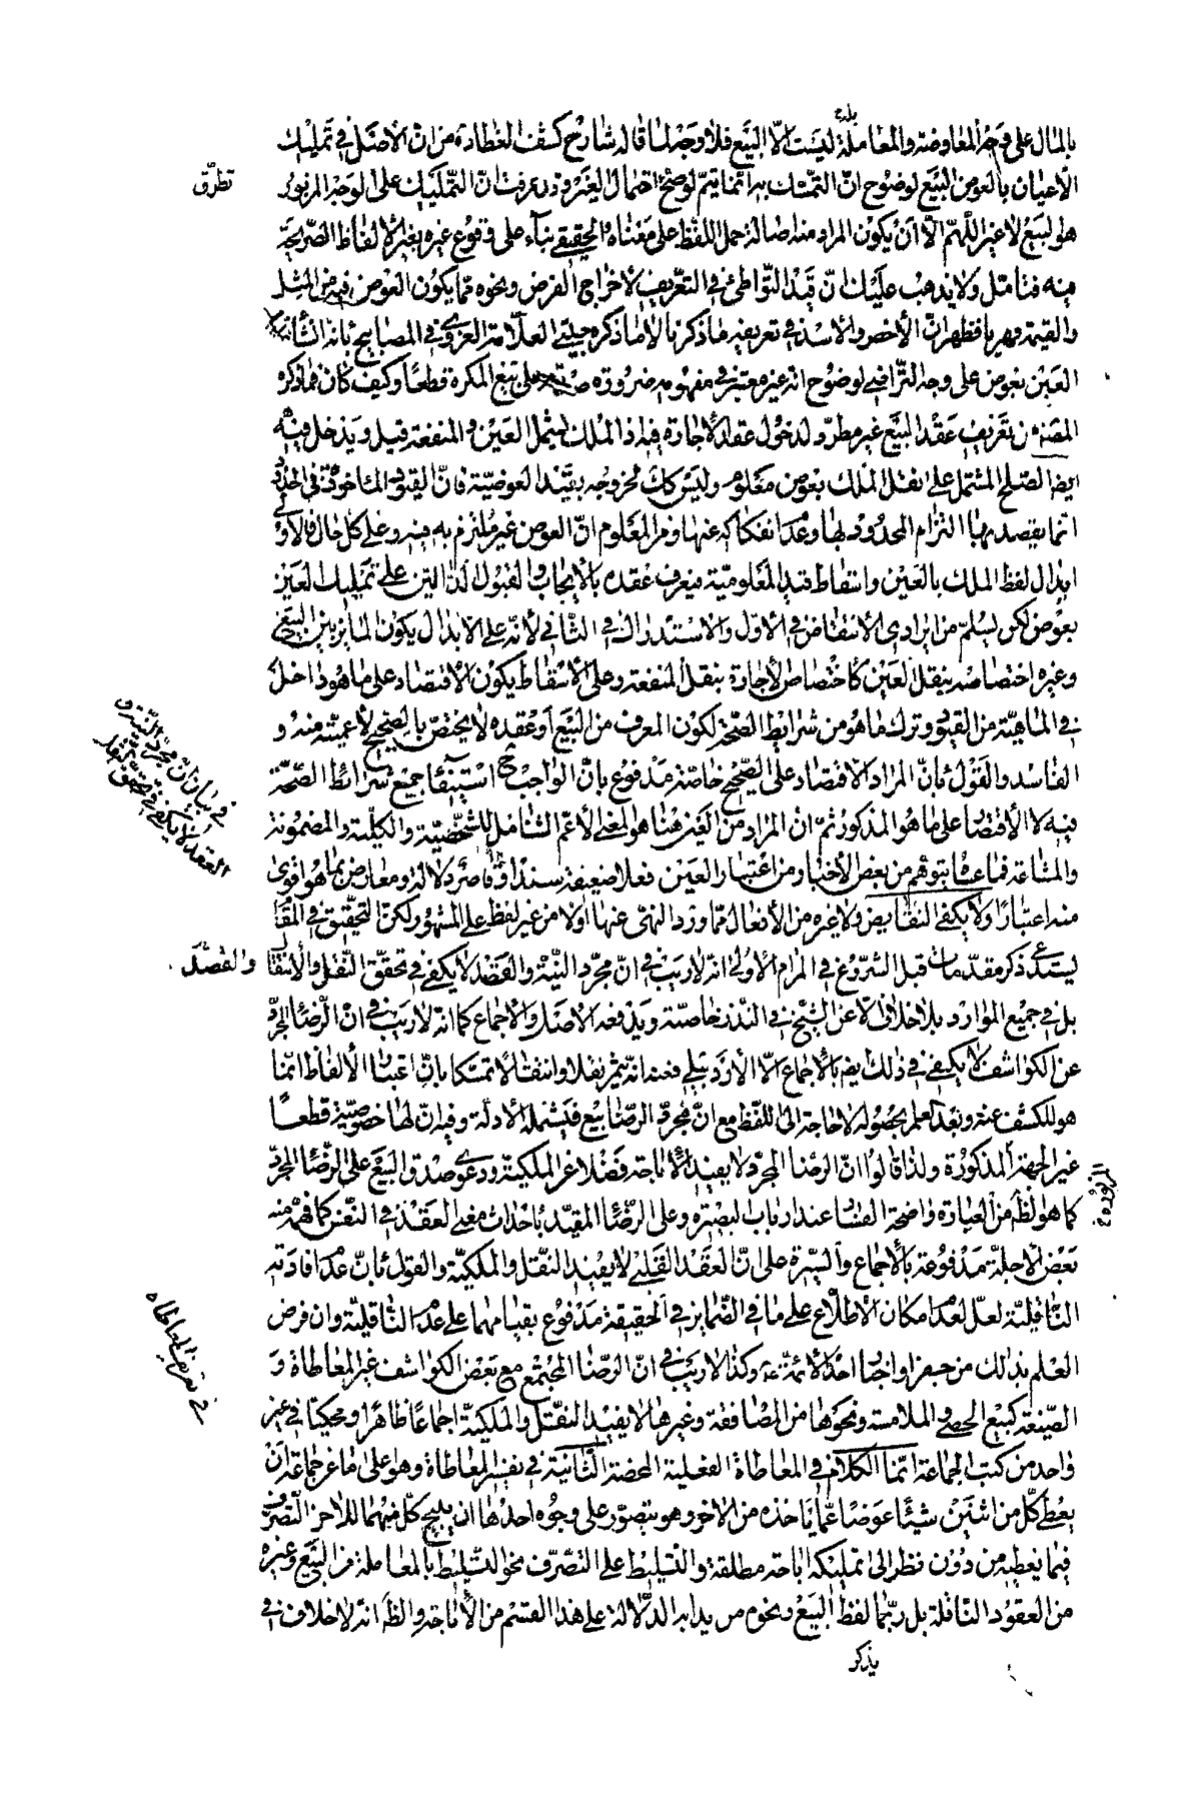 بالمال على وجه المعاوضة والمعاملة ليست الا البيع فلا وجه لما قاله شارح كشف الغطاء ره من ان الأصل في تمليك
الأعيان بالعوض البيع لوضوح ان التمسك به انما يتم لو صح احتمال الغير وقد عرفت ان التمليك على الوجه المزبور
تطرق
هو البيع لا غير اللهم الا ان يكون المراد منه اصالة حمل اللفظ على معناه الحقيقي بناء على وقوع غيره بغير الألفاظ الصريحة
فيه فتأمل ولا يذهب عليك ان قيد التواطئ في التعريف لاخراج القرض ونحوه مما يكون العوض فيه من المثل
والقيمة قهريا فظهر ان الأخصر والأسد في تعريفه ما ذكرنا لا ما ذكره العلامة الغروي في المصابيح بانه انشاء
العين بعوض على وجه التراضي لوضوح انه غير معتبر في مفهومه ضرورة على بيع المكره قطعا وكيف كان فما ذكره
المصنف من تعريف عقد البيع غير مطرد لدخول عقد الأجارة فيه اذ الملك يشمل العين والمنفعة قيل ويدخل فيه
ايضا الصلح المشتمل على نقل الملك بعوض معلوم وليس كك لخروجه بقيد العوضية فان القيود المأخوذة في الحدود
انما يقصد بها التزام المحدود لها وعدم انفكاكه عنها ومن المعلوم ان العوض غير ملتزم به فيه وعلى كل حال فالأولى
ابدال لفظ الملك بالعين واسقاط قيد المعلومية فيعرف عقده بالأيجاب والقبول الدالين على تمليك العين
بعوض لكي يسلم من ايرادي الأنتقاض في الأول والاستدراك في الثاني لأنه على الابدال يكون المايز بين البيع
وغيره اختصاصه بنقل العين كاختصاص الأجارة بنقل المنفعة وعلى الأسقاط يكون الأقتصار على ما هو داخل
في الماهية من القيود وترك ما هو من شرايط الصحة لكون المعرف من البيع او عقده لا يختص بالصحيح لأعميته منه و
في بيان ان مجرد النية و
العقد لا يكفي في تحقق النقل
الفاسد والقول بان المراد الاقتصار على الصحيح خاصة مدفوع بان الواجب ح استيفاء جميع شرائط الصحة
فيه لا الأقتصار على ما هو المذكور ثم ان المراد من العين هنا هو المعنى الأعم الشامل للشخصية والكلية والمضمونة
والمشاعة فما عساه يتوهم من بعض الأخبار من اعتبار العين فعلا ضعيفة سندا وقاصرة دلالة ومعارض بما هو اقوى
منه اعتبارا ولا يكفي التقابض ولا غيره من الأفعال مما ورد النهي عنها اولا من غير لفظ على المشهور ولكن التحقيق في المقام
يستدعي ذكر مقدمات قبل الشروع في المرام الأولى انه لا ريب في ان مجرد النية والقصد لا يكفي في تحقق النقل والأنتقال
والقصد
بل في جميع الموارد بلا خلاف الا عن الشيخ في النذر خاصة ويدفعه الاصل والأجماع كما انه لا ريب في ان الرضا المجرد
عن الكواشف لا يكفي في ذلك يضا بالأجماع الا الأردبيلي فعنده انه يثمر نقلا وانتقالا تمسكا بان اعتبار الألفاظ انما
هو للكشف عنه وبعد العلم بحصوله لا حاجة الى اللفظ مع ان مجرد الرضا بيع فيشمله الأدلة وفيه ان لها خصوصية قطعا
غير الجهة المذكورة ولذا قالوا ان الرضا المجرد لا يفيد الأباحة فضلا عن الملكية ودعوى صدق البيع على الرضا المجرد
كما هو الظ من العبارة واضحة الفساد عند ارباب البصيرة وعلى الرضا المقيد باحداث معنى العقد في النفس كما فهمه منه
بعض الأجلة مدفوعة بالأجماع والسيرة على ان العقد القلبي لا يفيد النقل والملكية والقول بان عدم افادته
الناقلية لعل لعدم امكان الأطلاع على ما في الضماير في الحقيقة مدفوع بقيامهما على عدم الناقلية وان فرض
في تعريف المعاطاه
العلم بذلك من جفر او اخبار احد الأئمة ع وكذا لا ريب في ان الرضا المجتمع مع بعض الكواشف غير المعاطاة و
الصيغة كبيع الحصى والملامسة ونحوها من المصافقة وغيرها لا يفيد النقل والملكية اجماعا ظاهرا ومحكيا في غير
واحد من كتب الجماعة انما الكلام في المعاطاة الفعلية المحضة الثانية في تفسير المعاطاة وهو على ما عن جماعة ان
يعطي كل من اثنين شيئا عوضا عما يأخذه من الاخر وهو يتصور على وجوه احدها ان يبيح كل منهما للاخر التصرف
فيما يعطيه من دون نظر الى تمليكه اباحة مطلقة والتسليط على التصرف نحو التسليط بالمعاملة من البيع وغيره
من العقود الناقلة بل ربما لفظ البيع ونحوه من يد ابه الدلالة على هذا القسم من الأباحة والظ انه لا خلاف في
يذكر